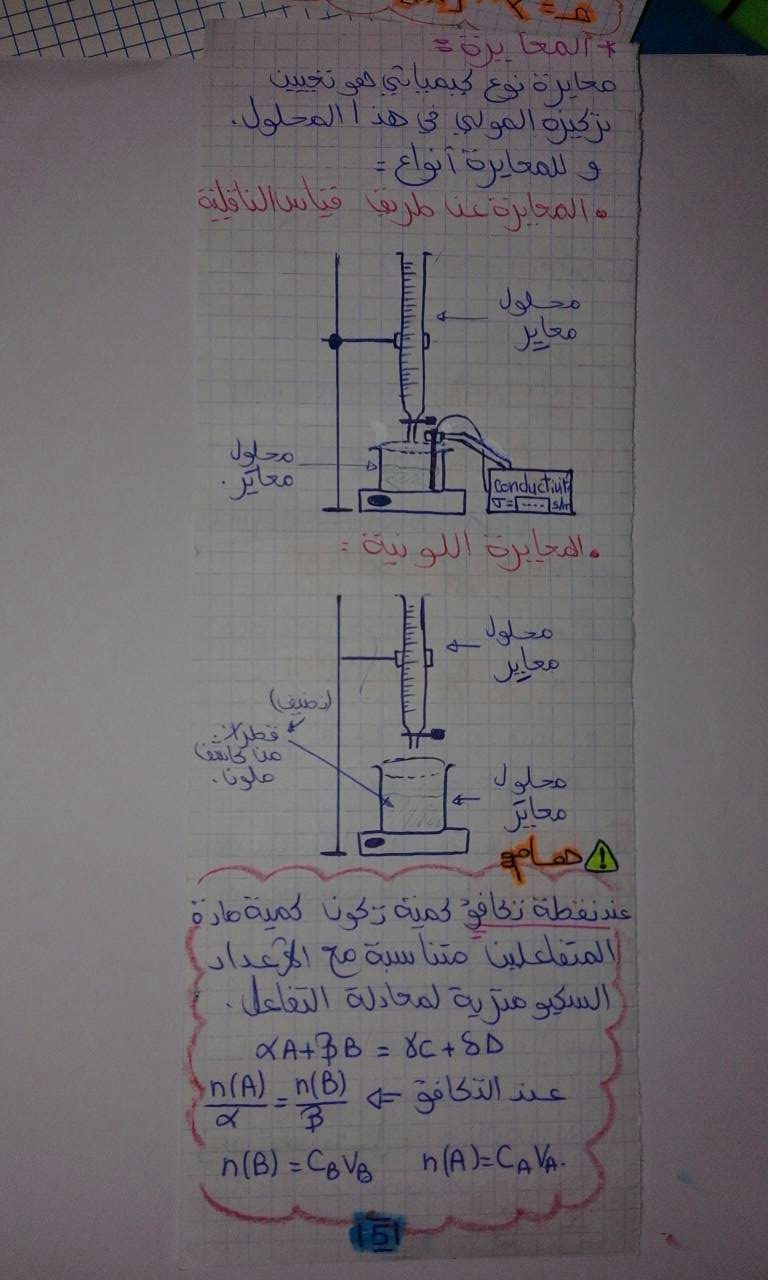 * المعايرة =
معايرة نوع كيميائي هو تعيين
تركيزه المولي في هذا المحلول.
و للمعايرة أنواع =
• المعايرة عن طريق قياس الناقلية
محلول
معايِر
محلول
معايَر.
conductivit
σ= .... s/m
• المعايرة اللونية :
محلول
معايِر
(نضيف)
قطرات
من كاشف
ملون.
محلول
معايَر
هام
عند نقطة تكافؤ كمية تكون كمية مادة
المتفاعلين متناسبة مع الأعداد
السكيومترية لمعادلة التفاعل.
αA+βB = γC+δD
عند التكافؤ ⇐ n(A)/α = n(B)/β
n(B) = CBVB n(A)=CAVA.
5